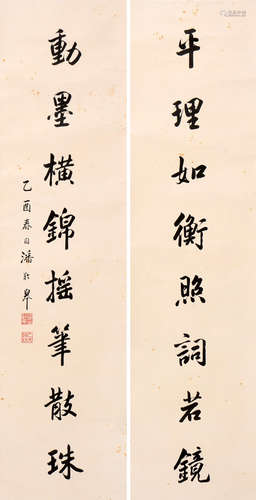 平理如衡照詞若鏡
動墨橫錦摇筆散珠
乙酉春日潘齡皋